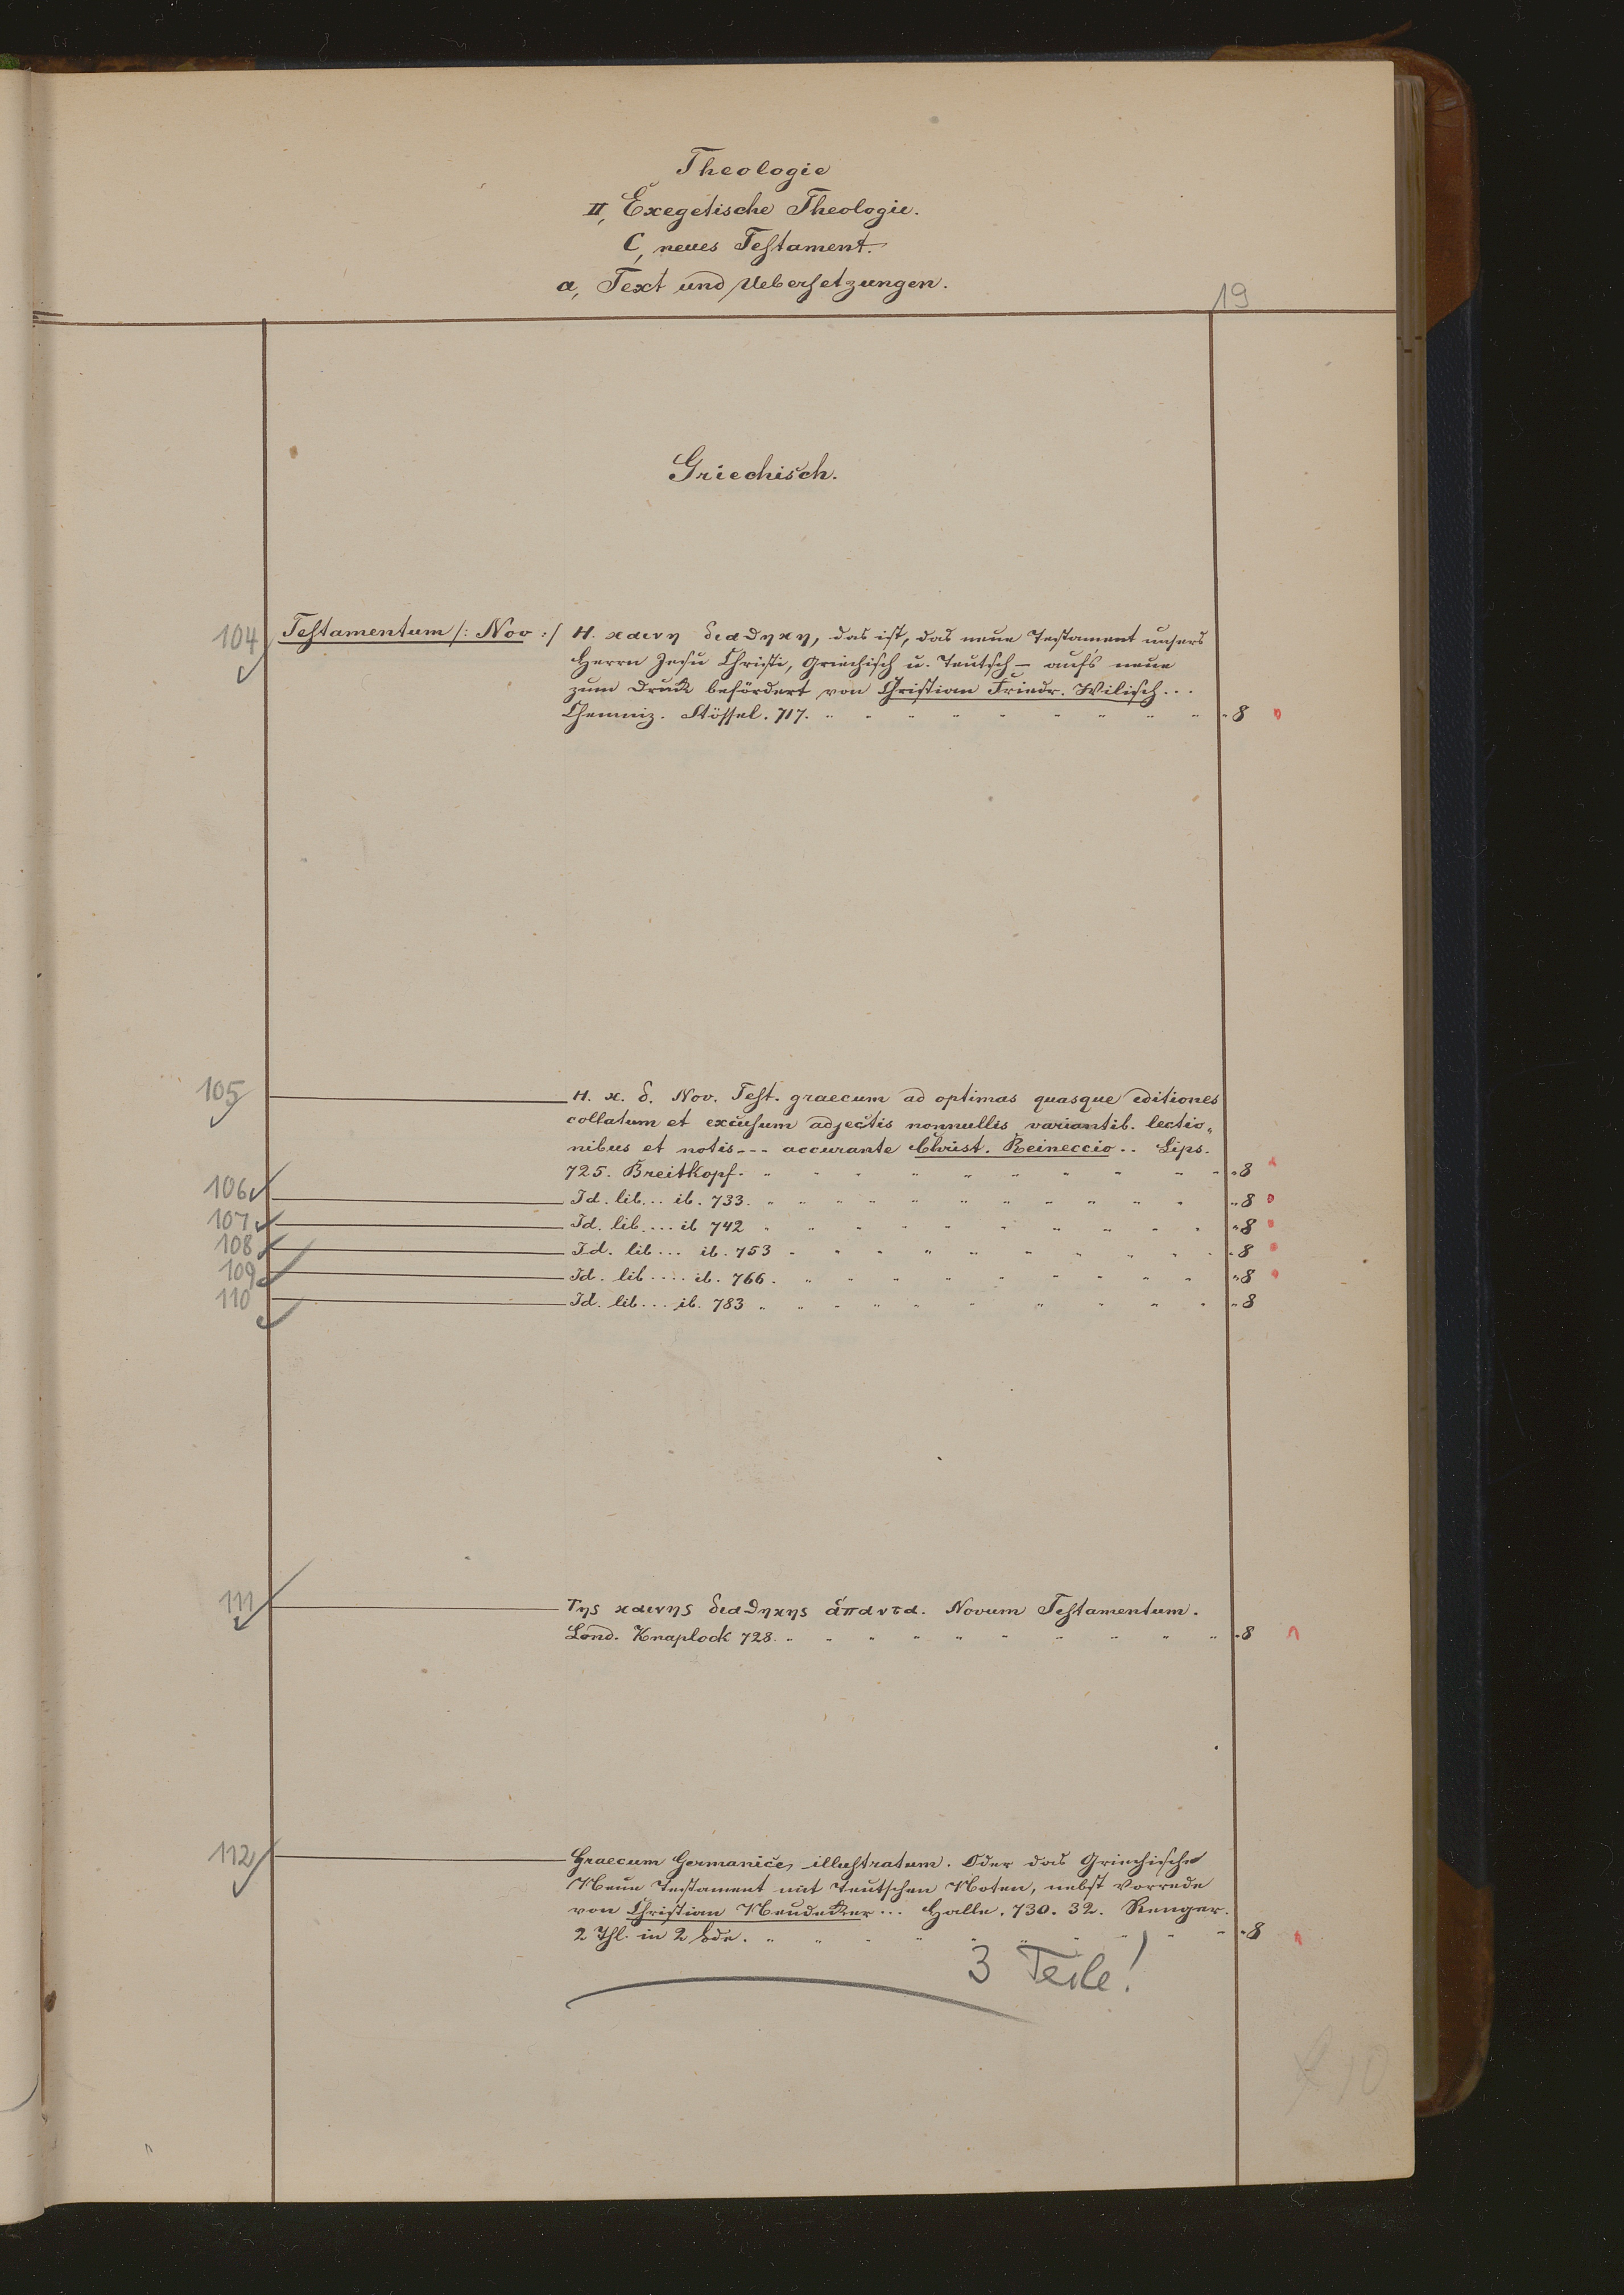 Theologie
II, Exegetische Theologie.
C, neues Testament.
a, Text und Uebersetzungen.
19
Griechisch.
104 Testamentum /: Nov :/ Η. καινη διαθηκη, das ist, das neue Testament unsers
Herrn Jesu Christi, Griechisch u. Teutsch – auf's neue
zum Druk befördert von Christian Friedr. Wilisch...
Chemniz. Stössel. 717. " " " " " " " " " " 8
105 Η. κ. δ. Nov. Test. graecum ad optimas quasque editiones
collatum et excusum adjectis nonnullis variantib. lectio„
nibus et notis--- accurante Christ. Reineccio.. Lips.
725. Breitkopf. " " " " " " " " " " 8
106 Id. lib... ib. 733. " " " " " " " " " " " 8
107 Id. lib.... ib 742 " " " " " " " " " " 8
108 Id. lib... ib. 753 " " " " " " " " " " 8
109 Id. lib.... ib. 766. " " " " " " " " " " 8
110 Id. lib... ib. 783 " " " " " " " " " 8
111 Της καινης διαθηκης ἁπαντα. Novum Testamentum.
Lond. Knaplock 728. " " " " " " " " " " 8
112 Graecum Germanice illustratum. Oder das Griechische
Neue Testament mit Teutschen Noten, nebst Vorrede
von Christian Neudeker... Halle. 730. 32. Renger.
2 Thl. in 2 Bde. " " " " " " " " " 8
3 Teile!